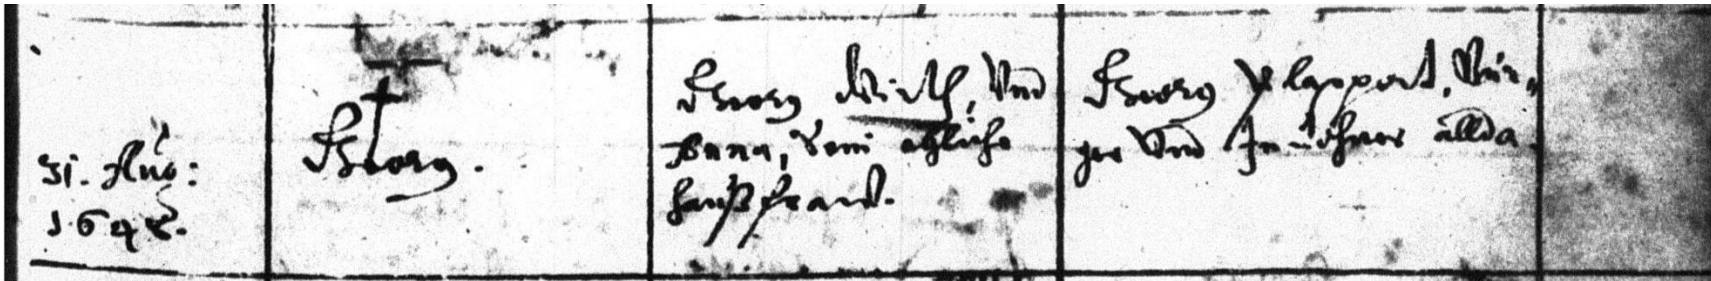 31. Aug:
1642.
Georg.
Georg Wirth, Vnd
Anna, sein ehliche
haußfraw.
Georg Plappert, Bür-
ger Vnd Inwohner allda.